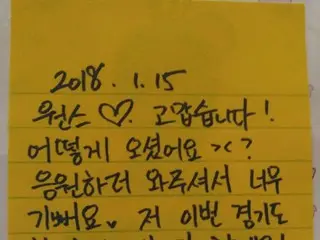 2018. 1. 15
원스♡. 고맙습니다!
어떻게 오셨어요 ><?
응원하러 와주셔서 너무
기뻐요♥ 저 이번 경기도